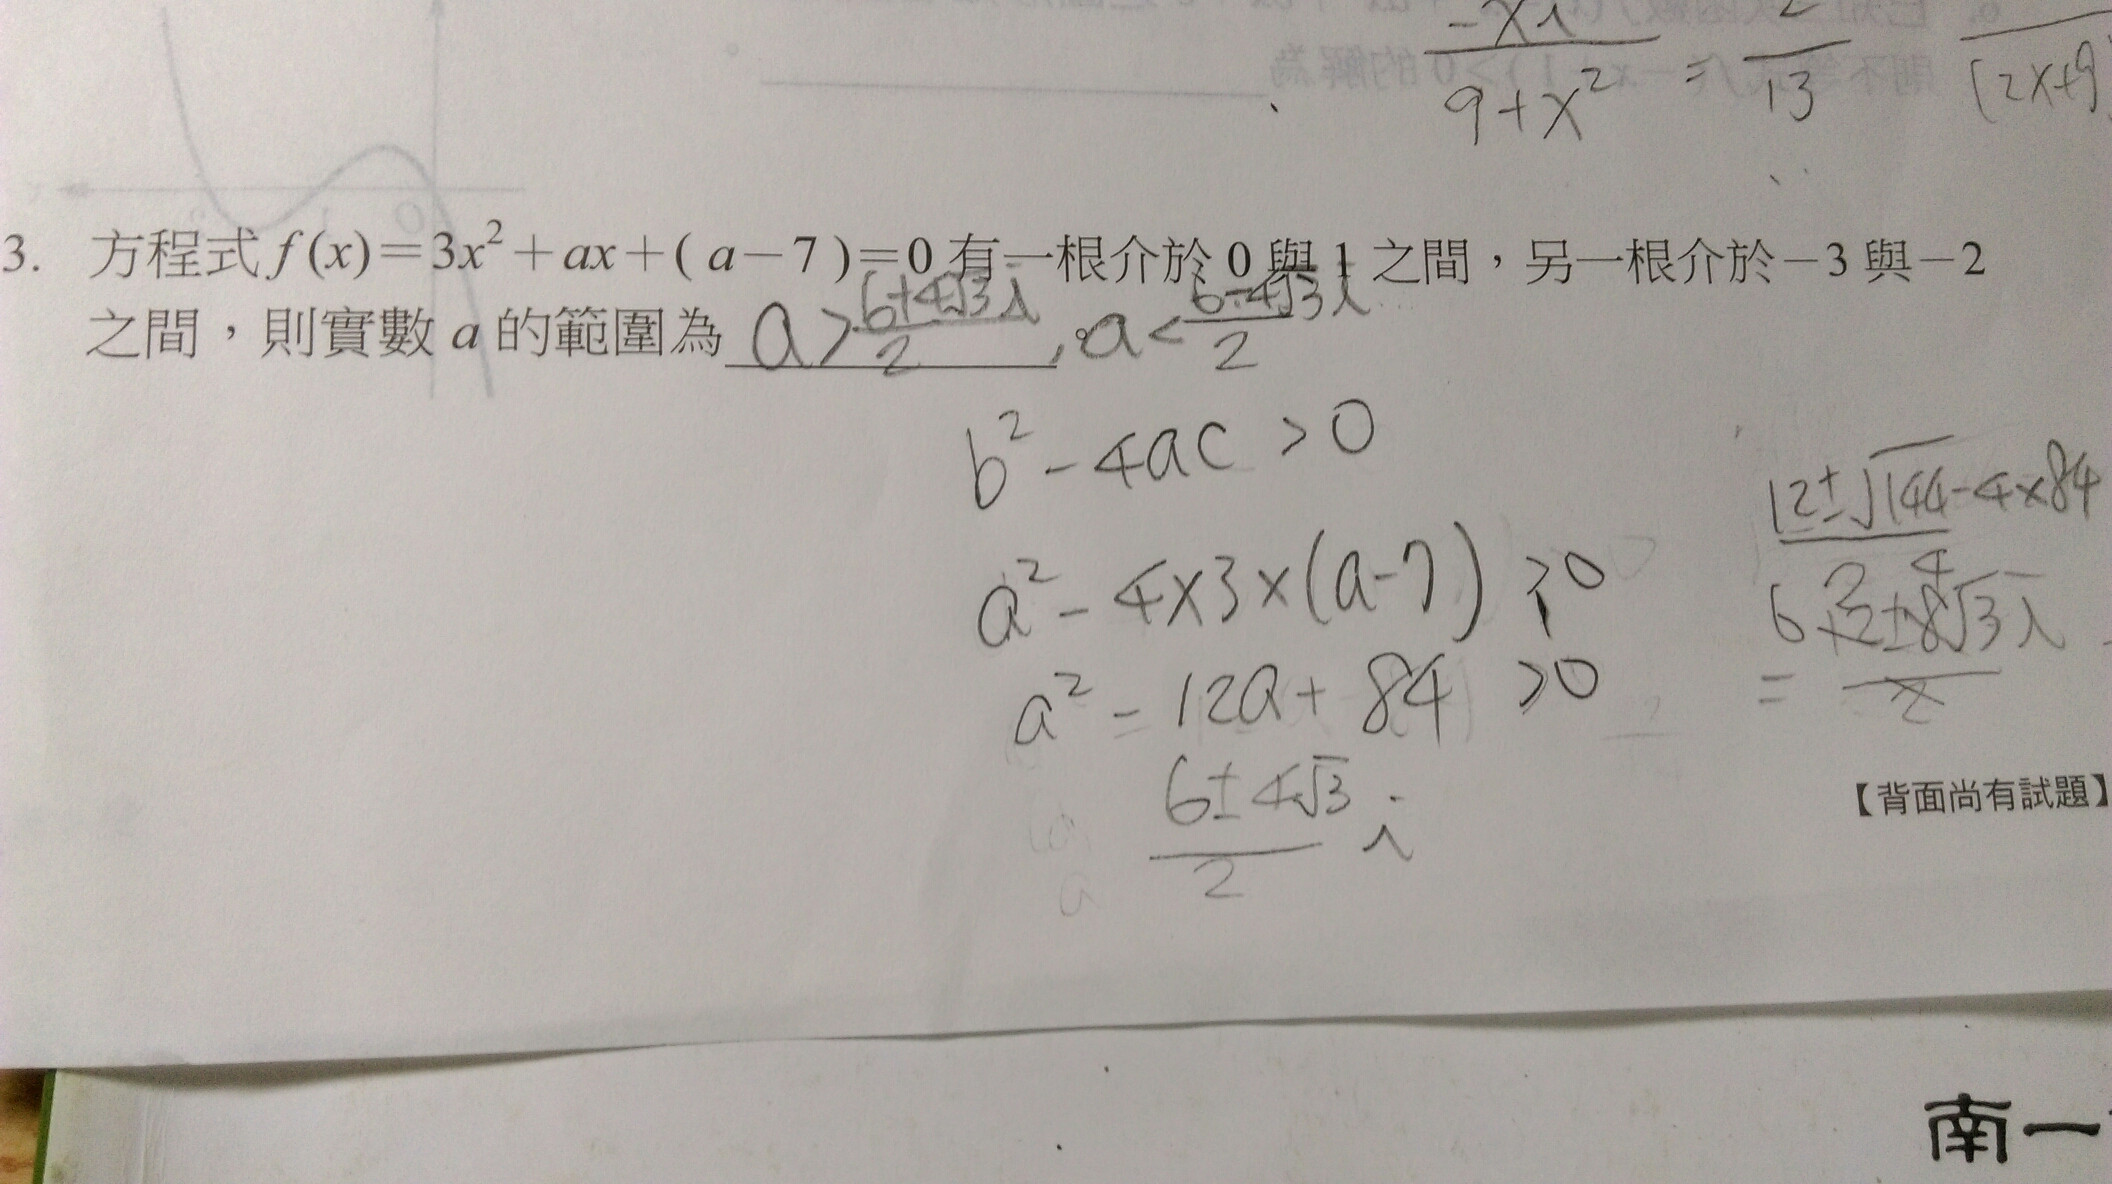 -xi / 9+x² = 2/13 (2x+9)
3. 方程式 f(x)=3x²+ax+(a-7)=0 有一根介於 0 與 1 之間，另一根介於 -3 與 -2
之間，則實數 a 的範圍為 a > (6+4√3i)/2 , a < (6-4√3i)/2
b² - 4ac > 0
a² - 4×3×(a-7) > 0
a² - 12a + 84 > 0
(6±4√3)/2 i
12±√144-4×84 / 2
= 6 12±8√3i / 2
【背面尚有試題】
南一